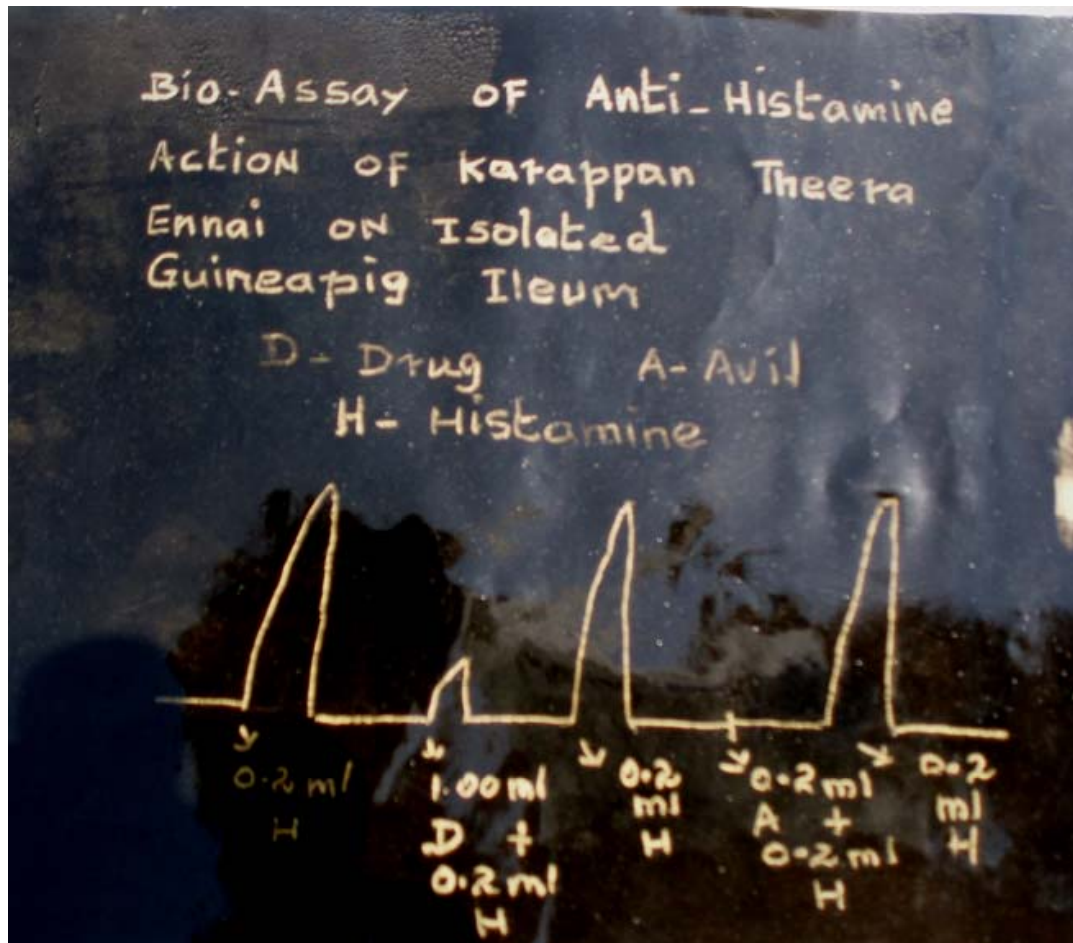 Bio-Assay OF Anti-Histamine
Action OF Karappan Theera
Ennai ON Isolated
Guineapig Ileum
D- Drug A- Avil
H- Histamine
0.2 ml
H
1.00 ml
D +
0.2 ml
H
0.2
ml
H
0.2 ml
A +
0.2 ml
H
0.2
ml
H